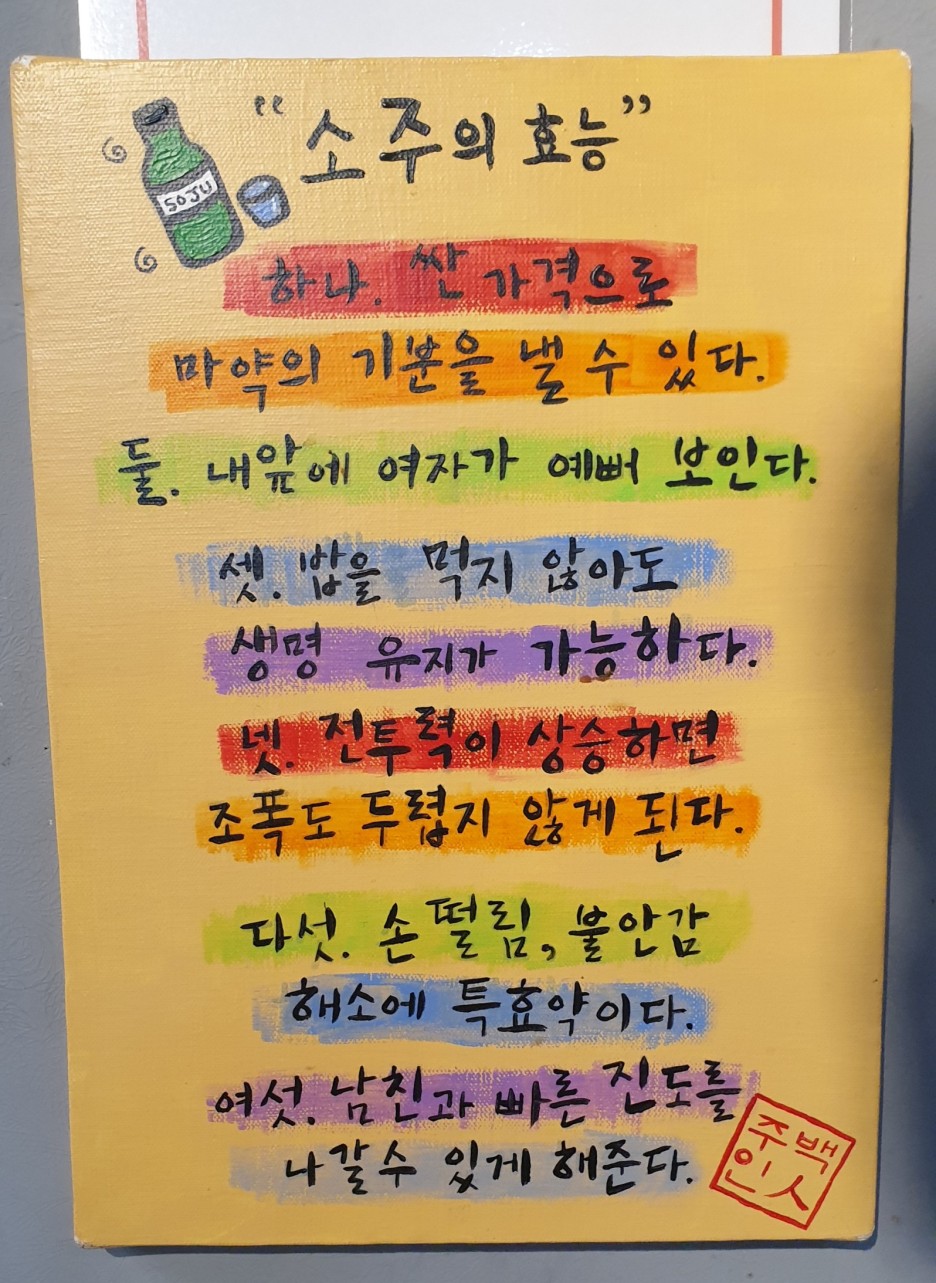 "소주의 효능"
SOJU
하나. 싼 가격으로
마약의 기분을 낼 수 있다.
둘. 내앞에 여자가 예뻐 보인다.
셋. 밥을 먹지 않아도
생명 유지가 가능하다.
넷. 전투력이 상승하면
조폭도 두렵지 않게 된다.
다섯. 손떨림, 불안감
해소에 특효약이다.
여섯. 남친과 빠른 진도를
나갈수 있게 해준다.
주백
인人